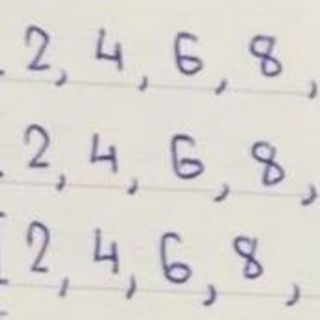 2, 4, 6, 8,
2, 4, 6, 8,
2, 4, 6, 8,